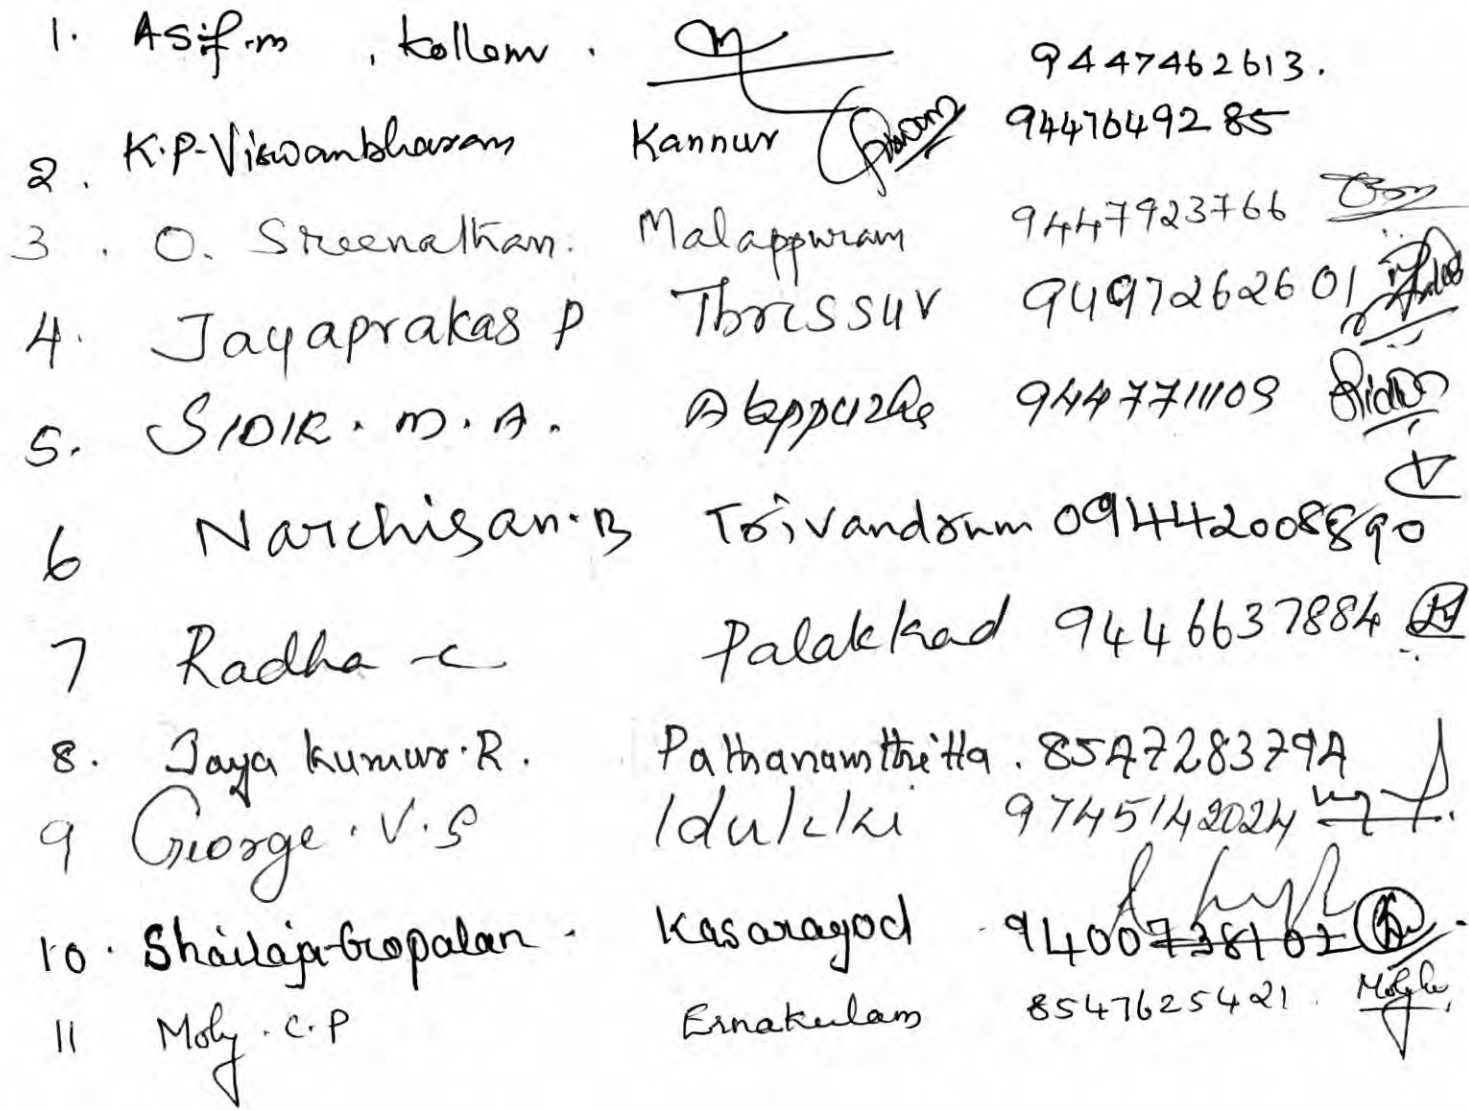 1. Asif.m , Kollam . 9447462613.
2. K.P.Viswambharam Kannur 9447649285
3. O. Sreenathan. Malappuram 9447923766
4. Jayaprakas P Thrissur 9497262601
5. SIDIK. M. A. Alappuzha 9447711109
6 Narchisan.B Trivandrum 094442008890
7 Radha - C Palakkad 9446637884
8. Jaya kumar.R. Pathanamthitta . 8547283794
9 George.V.S Idukki 9745142024
10. Shailaja Gopalan . Kasaragod 9400738102
11 Moly.C.P Ernakulam 8547625421.